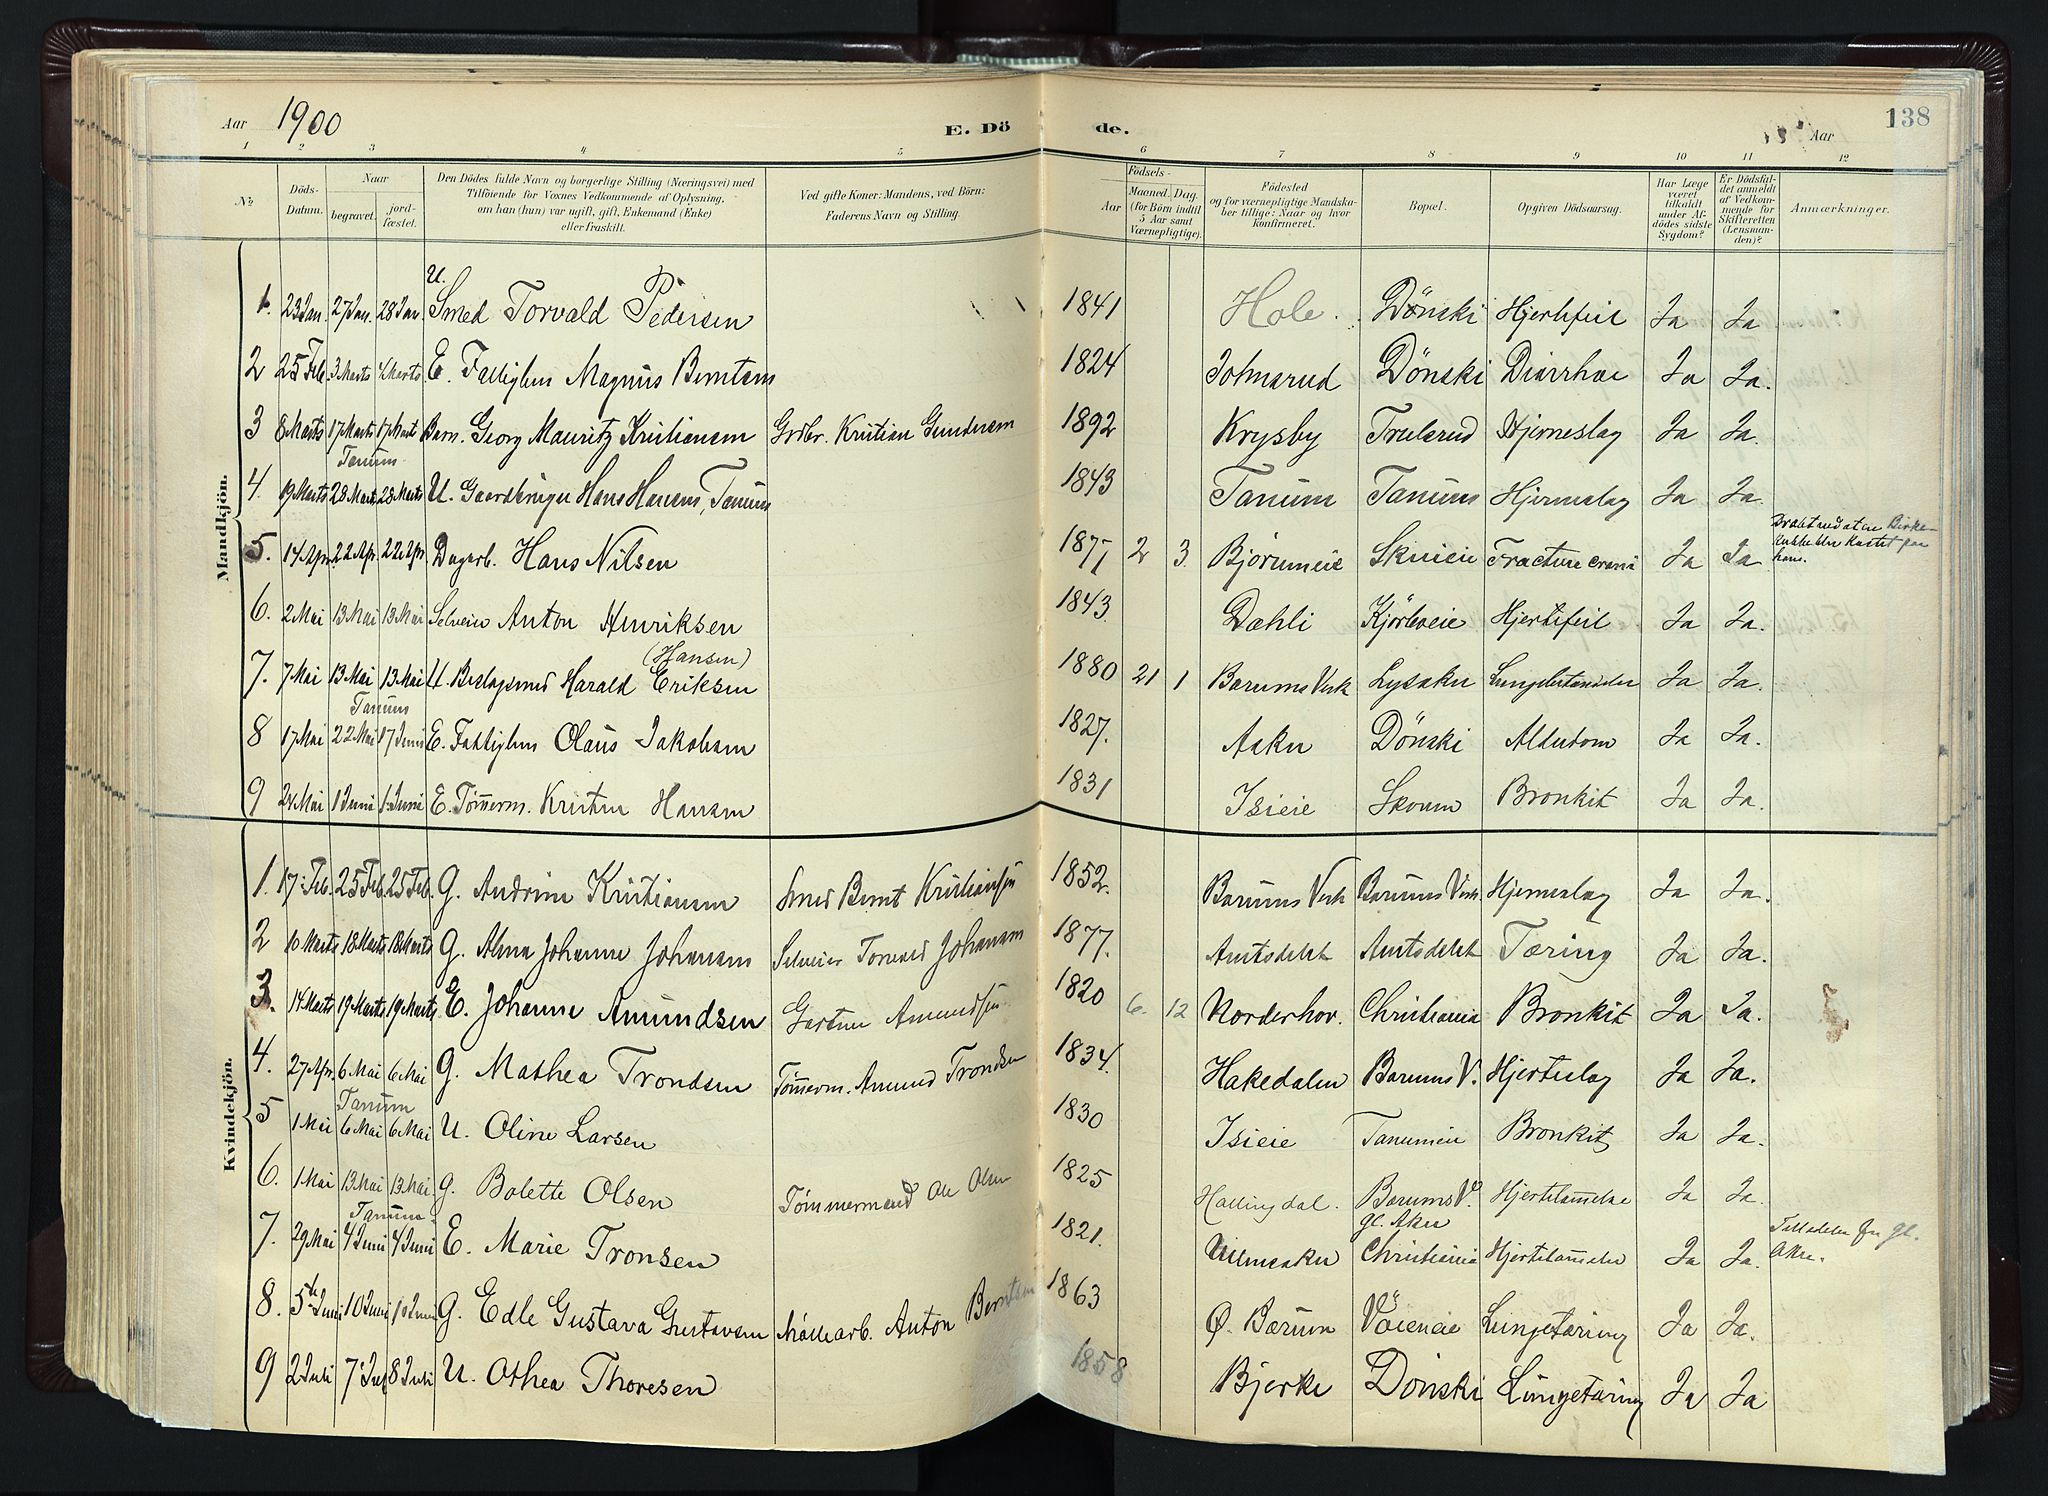 Aar 1900 E. Dö de. Aar 138
1 2 3 4 5 6 7 8 9 10 11 12
№ Döds-Datum. Naar begravet. jord-fæstet. Den Dödes fulde Navn og borgerlige Stilling (Næringsvei) med Tilföiende for Voxnes Vedkommende af Oplysning, om han (hun) var ugift, gift, Enkemand (Enke) eller fraskilt. Ved gifte Koner: Mandens, ved Börn: Faderens Navn og Stilling. Födsels- Aar Maaned. Dag. (for Börn indtil 5 Aar samt Værnepligtige). Födested og for værnepligtige Mandskaber tillige: Naar og hvor konfirmeret. Bopæl. Opgiven Dödsaarsag. Har Læge været tilkaldt under Afdödes sidste Sygdom? Er Dödsfaldet anmeldt af Vedkommende for Skifteretten (Lensmanden)? Anmærkninger.
Mandkjön.
1. 23 Jan. 27 Jan. 28 Jan. U. Smed Torvald Pedersen 1841 Hole. Dönski Hjertefeil Ja Ja
2 25 Feb. 3 Marts 4 Marts E. Fattiglem Magnus Berntsen 1824 Johnsrud Dönski Diarrhoe Ja Ja.
3 8 Marts 17 Marts 17 Marts Barn. Georg Mauritz Kristiansen Grdbr. Kristian Gundersen 1892 Krysby Trulsrud Hjerneslag Ja Ja.
Tanum
4. 19 Marts 28 Marts 28 Marts U. Gaardbruger Hans Hansen, Tanum 1843 Tanum Tanum Hjerneslag Ja Ja.
5. 14 Apr 22 Apr. 22 Apr. Dagarb. Hans Nilsen 1877 2 3. Bjørumeie Skuieie Fracture crani Ja Ja
6. 2 Mai 13 Mai 13 Mai Selveier Anton Henriksen 1843. Dæhli Kjörbveie Hjertefeil Ja Ja.
7. 7 Mai 13 Mai 13 Mai U. Beslagsmed Harald Eriksen (Hansen) 1880 21 1 Bærums Verk Lysaker Ja Ja.
Tanum
8 17 Mai 22 Mai 17 Juni E. Fattiglem Olaus Jakobsen 1827. Asker Dönski Alderdom Ja Ja.
9 24 Mai 1 Juni 1 Juni E. Tømmerm. Kristen Hansen 1831 Isieie Skoum Bronkit Ja Ja.
Kvindekjön.
1. 17. Feb. 25 Feb. 25 Feb. G. Andrine Kristiansen Smed Bernt Kristiansen 1852. Bærums Verk Bærums Verk. Hjerneslag Ja Ja.
2 10 Marts 18 Marts 18 Marts G. Alma Johanne Johansen Selveier Torvald Johansen 1877. Amtsdelet Amtsdelet Tæring Ja Ja.
3. 14 Marts 19 Marts 19 Marts E. Johanne Amundsen Gartner Amundsen 1820 6. 12 Norderhov. Christiania Bronkit Ja Ja.
4. 27 Apr. 6 Mai 6 Mai G. Mathea Trondsen Tømmerm. Amund Trondsen 1834. Hakedalen Bærums V. Hjerteslag Ja Ja.
Tanum
5 1 Mai 6 Mai 6 Mai U. Oline Larsen 1830 Isieie Tanumeie Bronkit Ja Ja.
6. 1 Mai 13 Mai 13 Mai G. Bolette Olsen Tømmermand Ole Olsen 1825 Hallingdal. Bærums V. Hjertelammelse Ja Ja.
Tanum
7. 29 Mai 4 Juni 4 Juni E. Marie Tronsen 1821. Ullensaker gl. Aker Christiania Hjertelammelse Ja Ja. gl. Aker.
8. 5te Juni 10 Juni 10 Juni G. Edle Gustava Gustavsen Møllearb. Anton Berntsen 1863 Ø. Bærum Vöieneie Lungetæring Ja Ja.
9 2 Juli 7 Juli 8 Juli U. Othea Thoresen 1858 Bjerke Dönski Lungetæring Ja Ja